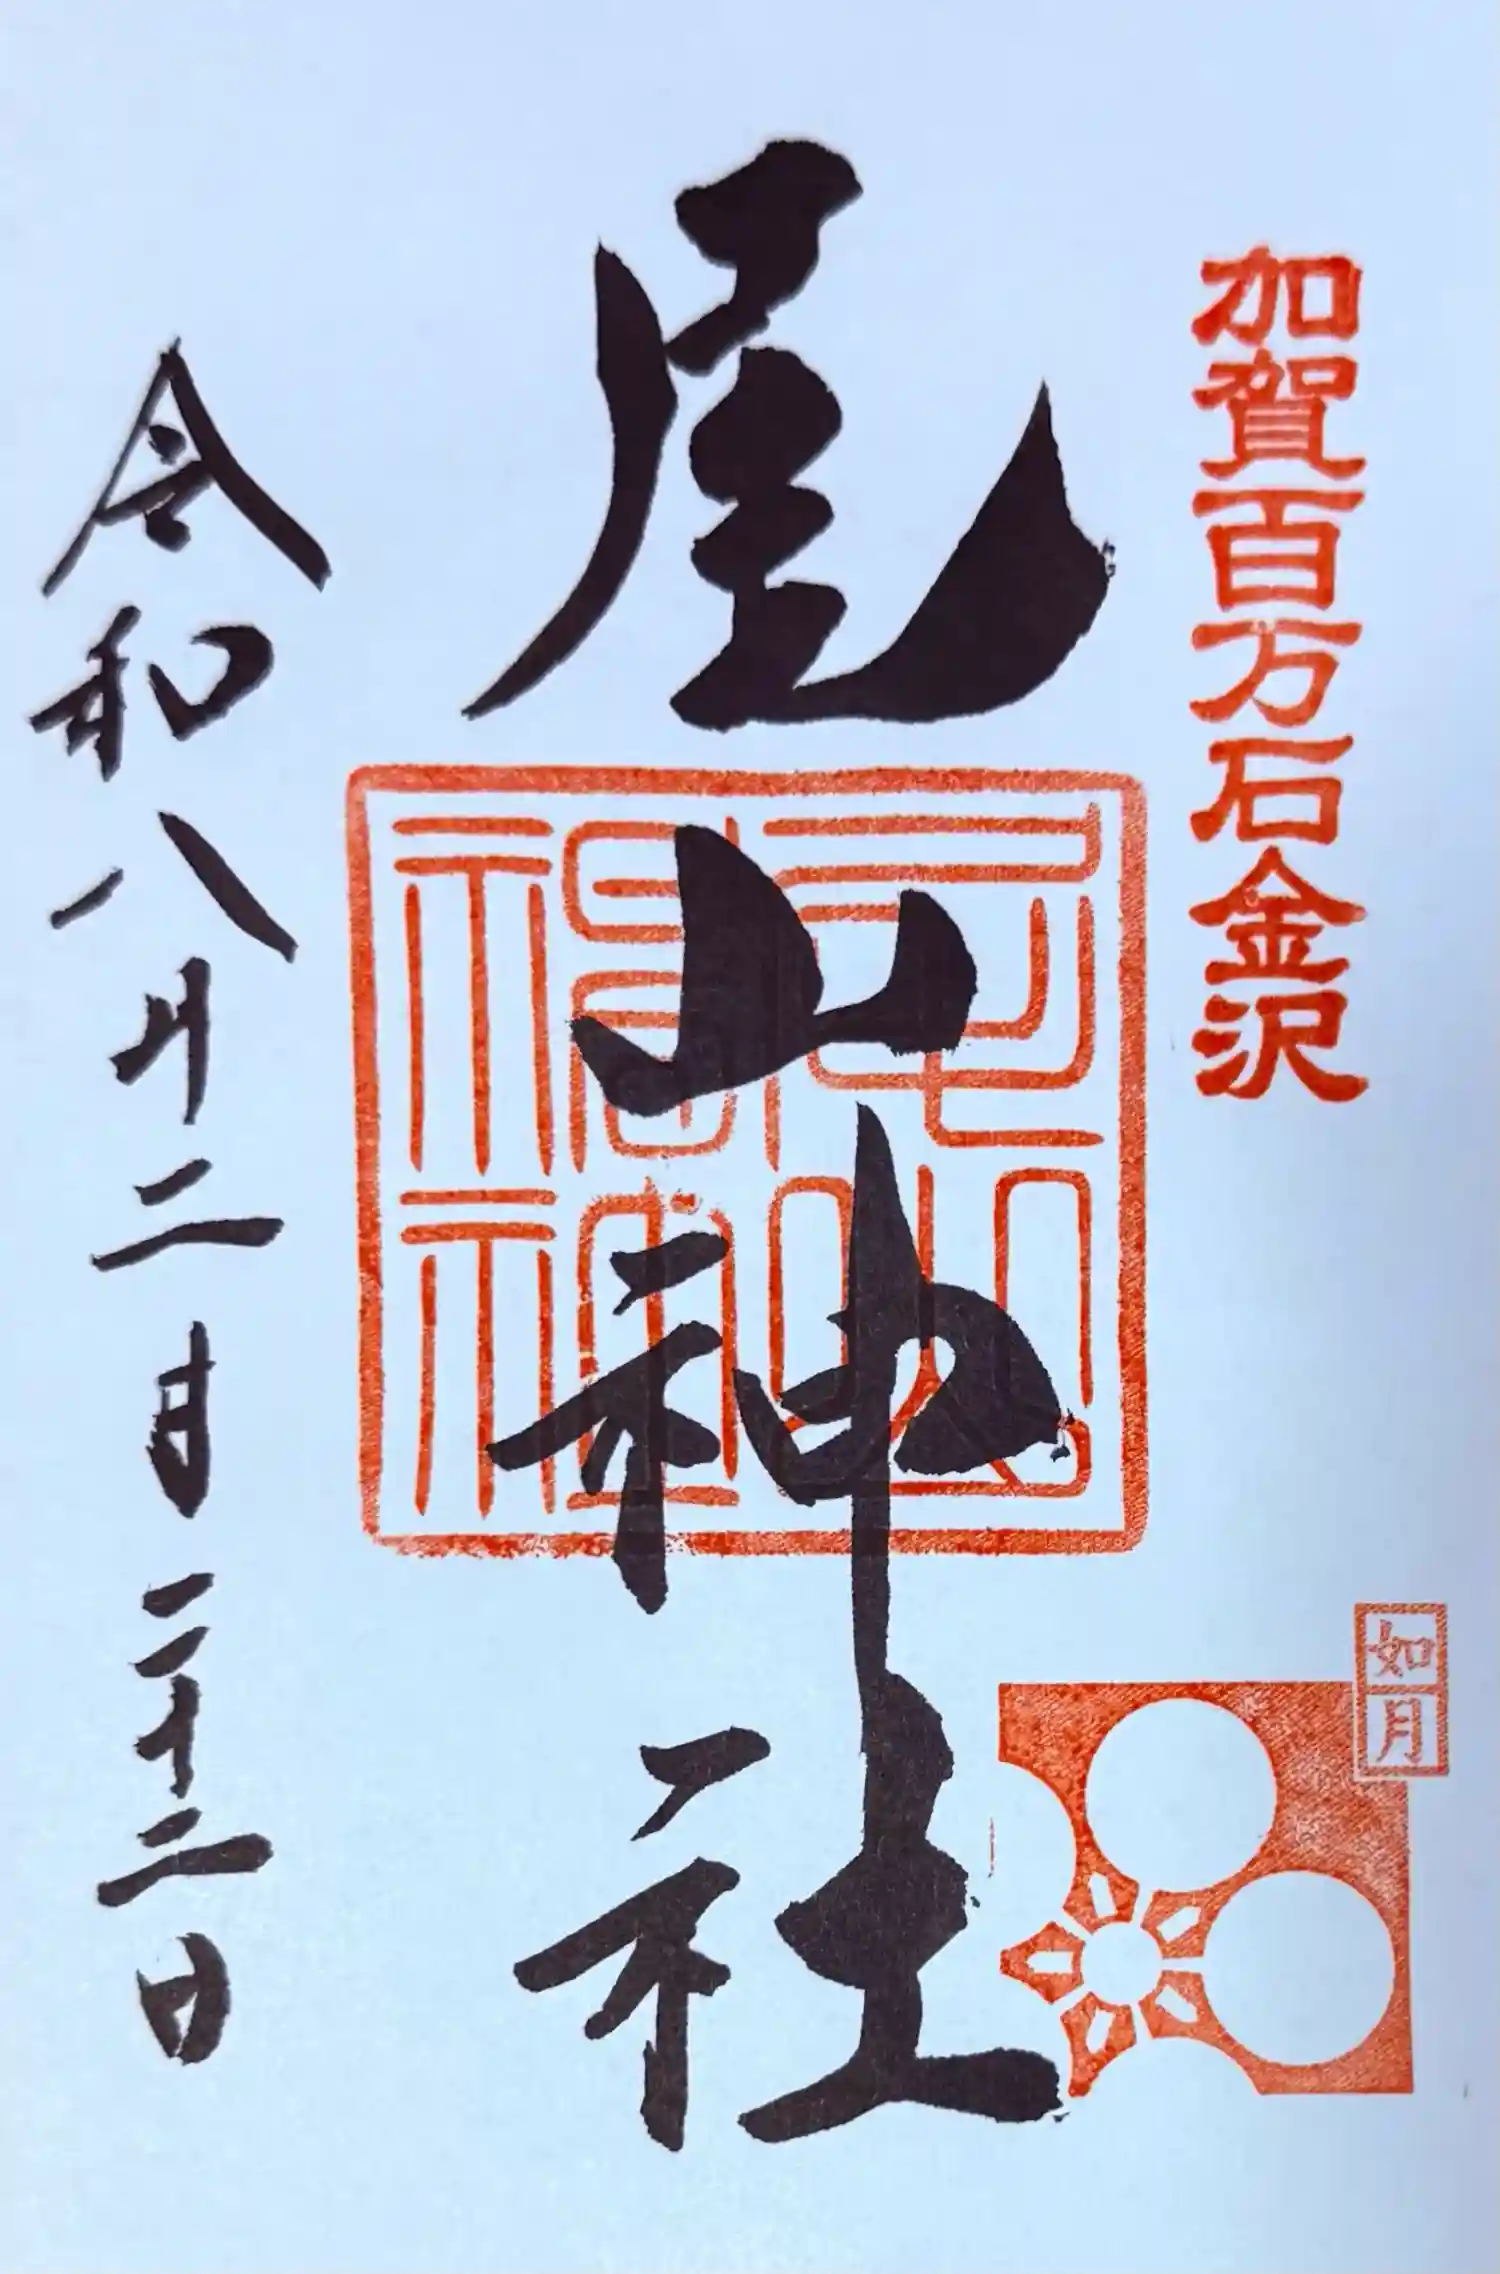 加賀百万石金沢
尾山神社
尾山
神社
如月
令和八年二月二十二日